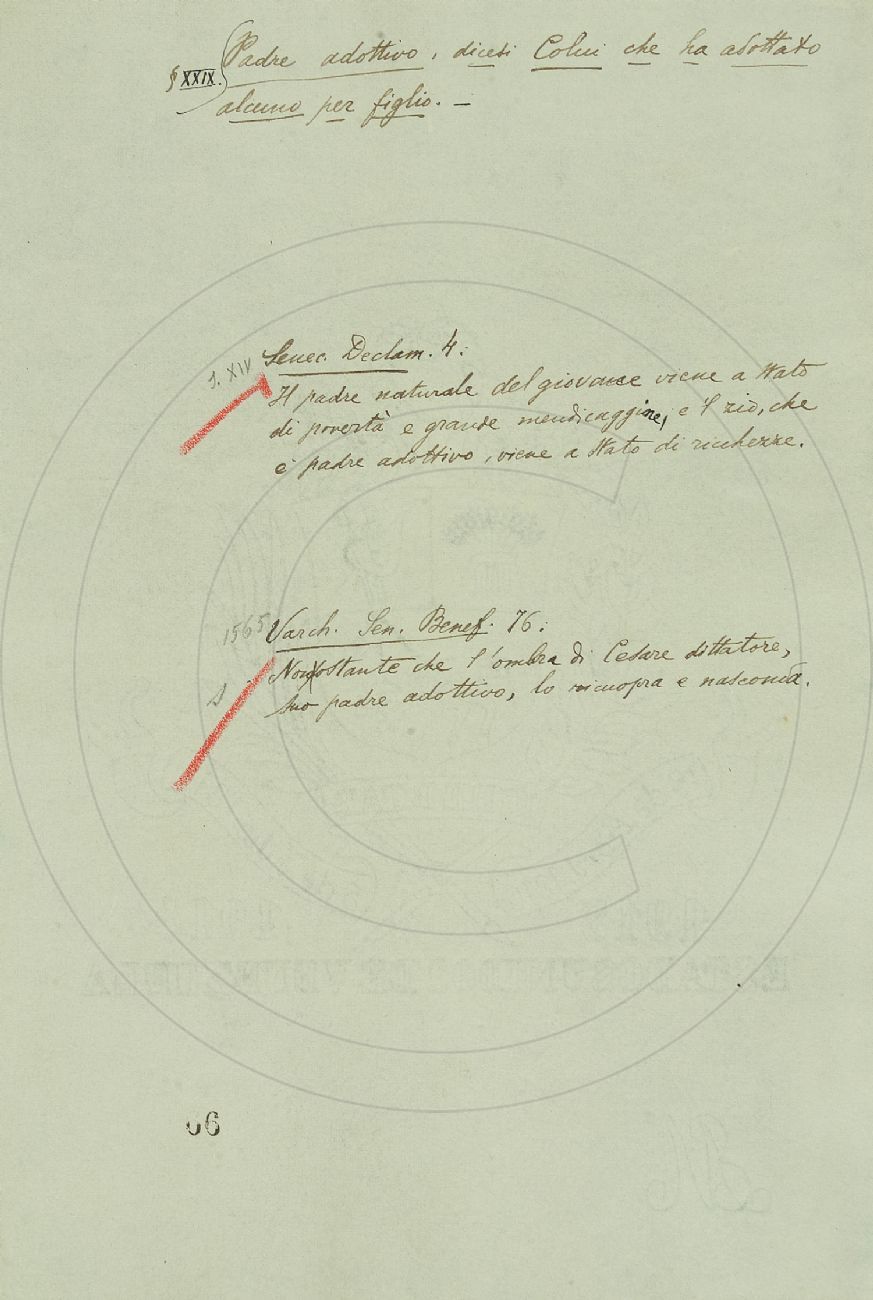 § XXIX. Padre adottivo, dicesi Colui che ha adottato
alcuno per figlio. —
S. XIV Senec. Declam. 4:
Il padre naturale del giovane viene a stato
di povertà e grande mendicaggine, e 'l zio, che
è padre adottivo, viene a stato di ricchezze.
1565 Varch. Sen. Benef. 76:
Nonostante che l'ombra di Cesare dittatore,
suo padre adottivo, lo ricuopra e nasconda.
66